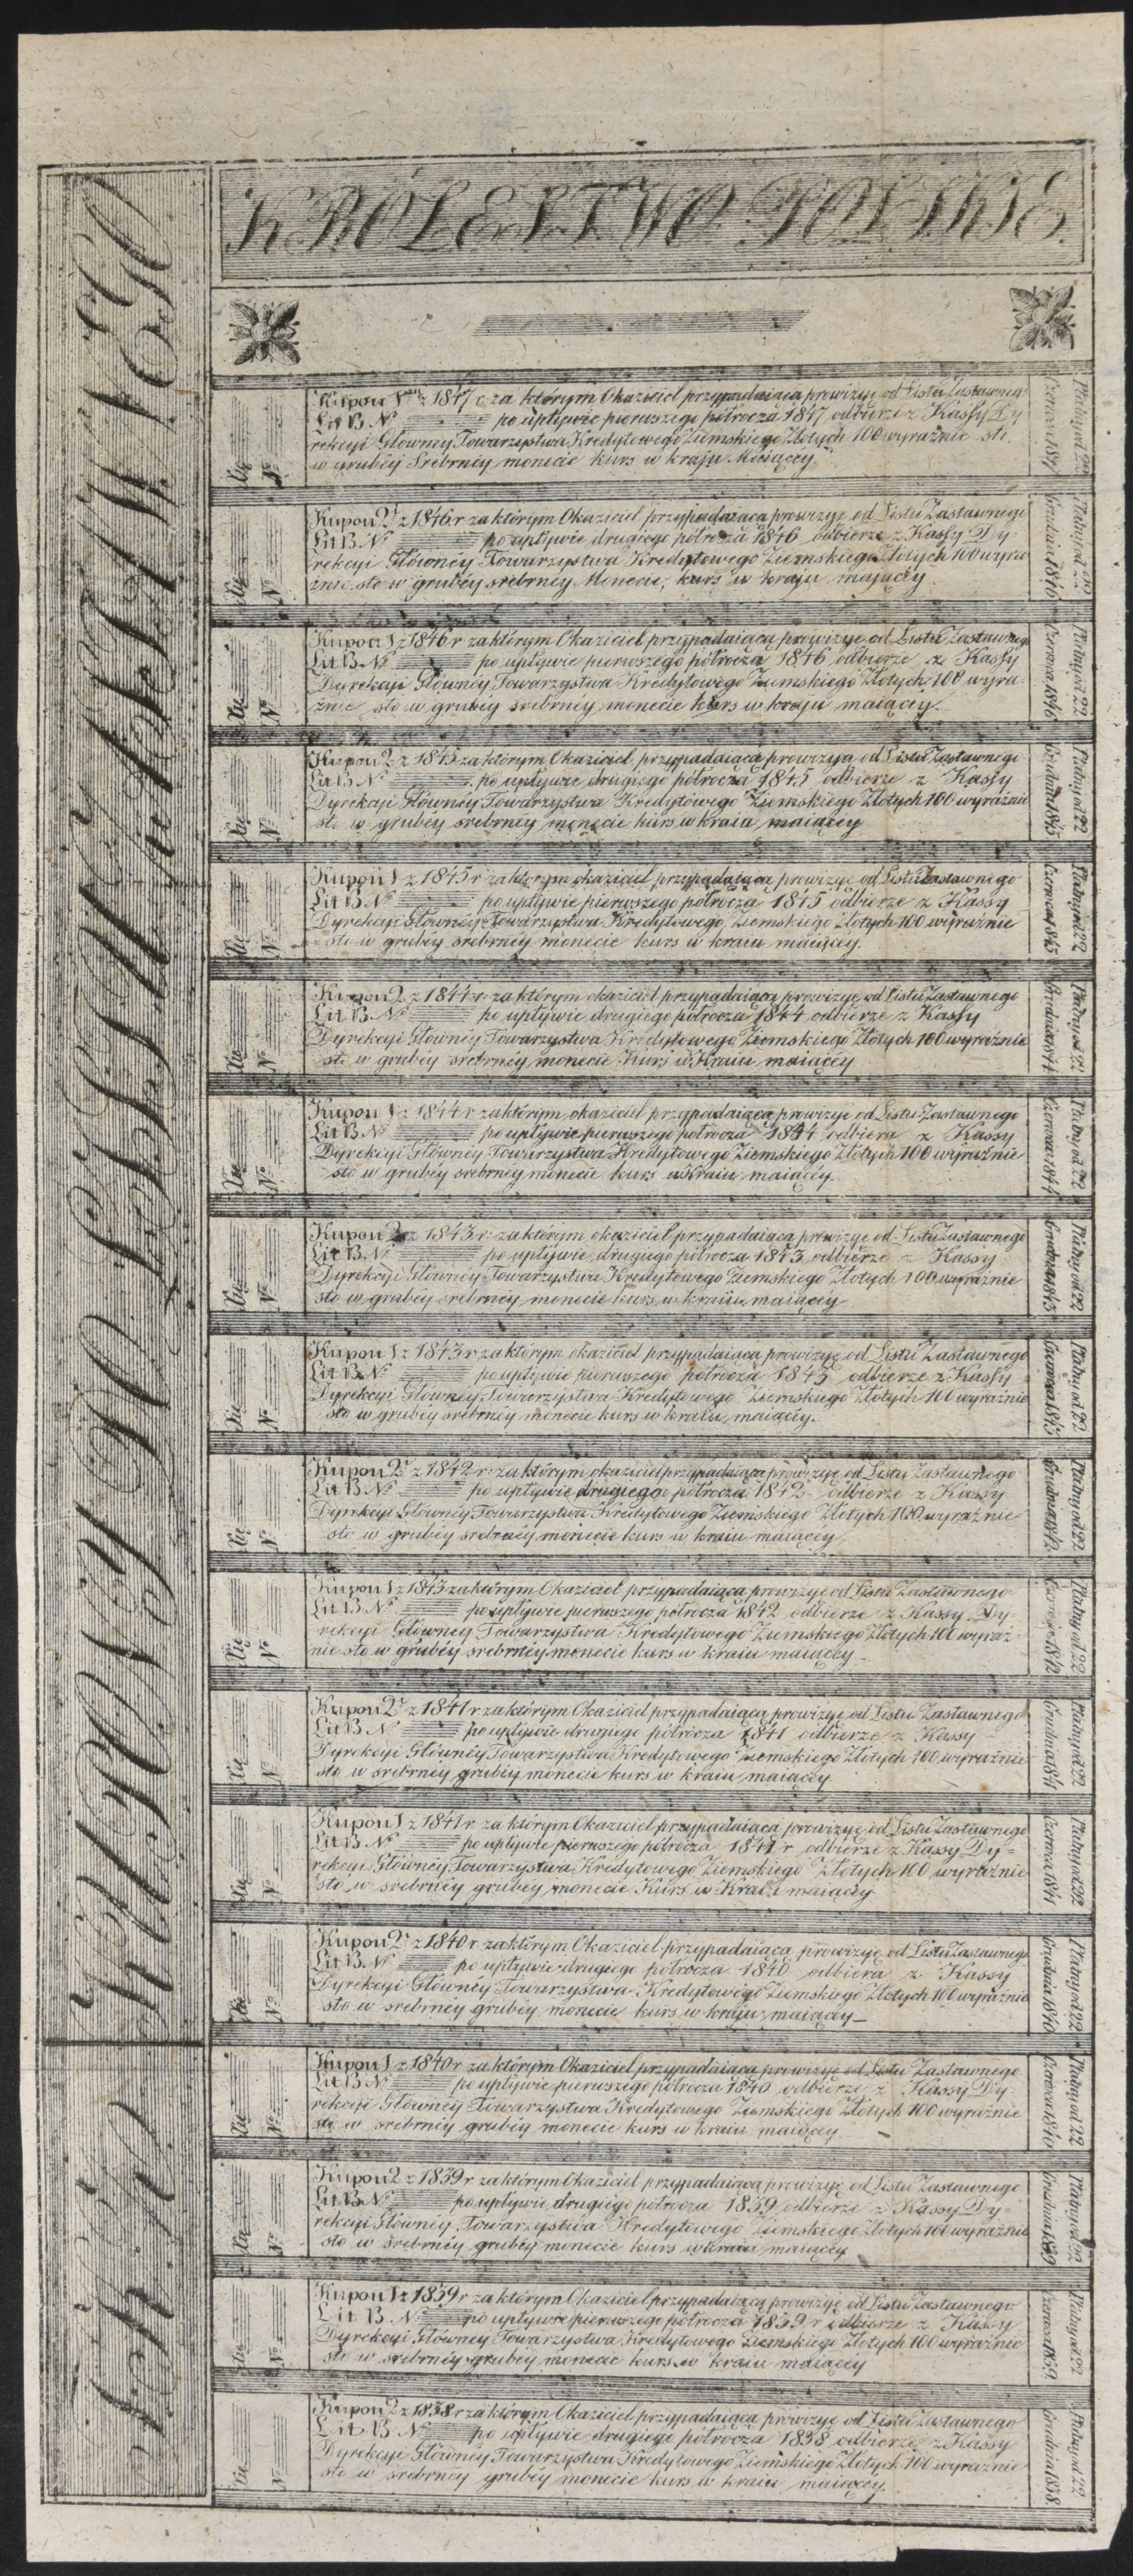 KRÓLESTWO POLSKIE
KUPONY DO LISTU ZASTAWNEGO
Kupon 1 z 1847 r. za którym Okaziciel przypadaiącą prowizyę od Listu Zastawneg
Lit B. Nº po upływie pierwszego półrocza 1847 odbierze z Kassy Dy
rekcyi Główney Towarzystwa Kredytowego Ziemskiego Złotych 100 wyraźnie sto
w grubéy Srebrnéy monecie kurs w kraju Maiącéy
Płatny od 22
Czerwca 1847
Nº
Kupon 2 z 1846 r za którym Okaziciel przypadaiącą prowizyę od Listu Zastawnego
Lit B. Nº po upływie drugiego półrocza 1846 odbierze z Kassy Dy-
rekcyi Główney Towarzystwa Kredytowego Ziemskiego Złotych 100 wyra
źnie sto w grubéy srebrnéy Monecie, kurs w kraju mającéy
Płatny od 22
Grudnia 1846
Nº
Kupon 1 z 1846 r za którym Okaziciel przypadaiącą prowizyę od Listu Zastawneg
Lit B. Nº po upływie pierwszego półrocza 1846 odbierze z Kassy
Dyrekcyi Główney Towarzystwa Kredytowego Ziemskiego Złotych 100 wyra-
źnie sto w grubéy srebrnéy monecie kurs w kraju maiącéy.
Płatny od 22
Czerwca 1846
Nº
Kupon 2 z 1845 za którym Okaziciel przypadaiącą prowizyą od Listu Zastawnego
Lit B. Nº po upływie drugiego półrocza 1845 odbierze z Kassy
Dyrekcyi Główney Towarzystwa Kredytowego Ziemskiego Złotych 100 wyraźnie
sto w grubéy srebrnéy monecie kurs w kraiu maiącéy
Płatny od 22
Grudnia 1845
Nº
Kupon 1 z 1845 r za którym okaziciel przypadaiącą prowizyę od Listu Zastawnego
Lit B. Nº po upływie pierwszego półrocza 1845 odbierze z Kassy
Dyrekcyi Główney Towarzystwa Kredytowego Ziemskiego Złotych 100 wyraźnie
sto w grubéy srebrnéy monecie kurs w kraiu maiącéy.
Płatny od 22
Czerwca 1845
Nº
Kupon 2 z 1844 r za którym okaziciel przypadaiącą prowizyę od Listu Zastawnego
Lit B. Nº po upływie drugiego półrocza 1844 odbierze z Kassy
Dyrekcyi Główney Towarzystwa Kredytowego Ziemskiego Złotych 100 wyraźnie
sto w grubéy srebrnéy monecie Kurs w Kraiu maiącéy
Płatny od 22
Grudnia 1844
Nº
Kupon 1 z 1844 r za którym okaziciel przypadaiącą prowizyę od Listu Zastawnego
Lit B. Nº po upływie pierwszego półrocza 1844 odbiera z Kassy
Dyrekcyi Główney Towarzystwa Kredytowego Ziemskiego Złotych 100 wyraźnie
sto w grubéy srebrnéy monecie kurs w Kraiu maiącéy.
Płatny od 22
Czerwca 1844
Nº
Kupon 2 z 1843 r za którym okaziciel przypadaiącą prowizyę od Listu Zastawnego
Lit B. Nº po upływie drugiego półrocza 1843 odbierze z Kassy
Dyrekcyi Główney Towarzystwa Kredytowego Ziemskiego Złotych 100 wyraźnie
sto w grubéy srebrnéy monecie kurs w kraiu maiącéy
Płatny od 22
Grudnia 1843
Nº
Kupon 1 z 1843 r za którym okaziciel przypadaiącą prowizyę od Listu Zastawnego
Lit B. Nº po upływie pierwszego półrocza 1843 odbierze z Kassy
Dyrekcyi Główney Towarzystwa Kredytowego Ziemskiego Złotych 100 wyraźnie
sto w grubéy srebrnéy monecie kurs w kraiu maiącéy.
Płatny od 22
Czerwca 1843
Nº
Kupon 2 z 1842 r za którym okaziciel przypadaiącą prowizyę od Listu Zastawnego
Lit B. Nº po upływie drugiego półrocza 1842 odbierze z Kassy
Dyrekcyi Główney Towarzystwa Kredytowego Ziemskiego Złotych 100 wyraźnie
sto w grubéy srebrnéy monecie kurs w kraiu maiącéy
Płatny od 22
Grudnia 1842
Nº
Kupon 1 z 1843 za którym Okaziciel przypadaiącą prowizyę od Listu Zastawnego
Lit B. Nº po upływie pierwszego półrocza 1842 odbierze z Kassy Dy-
rekcyi Główney Towarzystwa Kredytowego Ziemskiego Złotych 100 wyraź-
nie sto w grubéy srebrnéy monecie kurs w kraiu maiącéy
Płatny od 22
Czerwca 1842
Nº
Kupon 2 z 1841 r za którym Okaziciel przypadaiącą prowizyę od Listu Zastawnego
Lit B. Nº po upływie drugiego półrocza 1841 odbierze z Kassy
Dyrekcyi Główney Towarzystwa Kredytowego Ziemskiego Złotych 100 wyraźnie
sto w srebrnéy grubéy monecie kurs w kraiu maiącéy
Płatny od 22
Grudnia 1841
Nº
Kupon 1 z 1841 r za którym Okaziciel przypadaiącą prowizyę od Listu Zastawnego
Lit B. Nº po upływie pierwszego półrocza 1841 r odbierze z Kassy Dy=
rekcyi Główney Towarzystwa Kredytowego Ziemskiego Złotych 100 wyraźnie
sto w srebrnéy grubéy monecie Kurs w Kraiu maiącéy
Płatny od 22
Czerwca 1841
Nº
Kupon 2 z 1840 r za którym Okaziciel przypadaiącą prowizyę od Listu Zastawnego
Lit B. Nº po upływie drugiego półrocza 1840 odbiera z Kassy
Dyrekcyi Główney Towarzystwa Kredytowego Ziemskiego Złotych 100 wyraźnie
sto w srebrnéy grubéy monecie kurs w kraju maiącéy
Płatny od 22
Grudnia 1840
Nº
Kupon 1 z 1840 r za którym Okaziciel przypadaiącą prowizyę od Listu Zastawnego
Lit B. Nº po upływie pierwszego półrocza 1840 odbierze z Kassy Dy-
rekcyi Główney Towarzystwa Kredytowego Ziemskiego Złotych 100 wyraźnie
sto w srebrnéy grubéy monecie kurs w kraiu maiącéy
Płatny od 22
Czerwca 1840
Nº
Kupon 2 z 1839 r za którym Okaziciel przypadaiącą prowizyę od Listu Zastawnego
Lit B. Nº po upływie drugiego półrocza 1839 odbierze z Kassy Dy=
rekcyi Główney Towarzystwa Kredytowego Ziemskiego Złotych 100 wyraźnie
sto w srebrnéy grubéy monecie kurs w kraiu maiącéy
Płatny od 22
Grudnia 1839
Nº
Kupon 1 z 1839 r za którym Okaziciel przypadaiącą prowizyę od Listu Zastawnego
Lit B. Nº po upływie pierwszego półrocza 1839 r odbierze z Kassy
Dyrekcyi Główney Towarzystwa Kredytowego Ziemskiego Złotych 100 wyraźnie
sto w srebrnéy grubéy monecie kurs w kraiu maiącéy
Płatny od 22
Czerwca 1839
Nº
Kupon 2 z 1838 r za którym Okaziciel przypadaiącą prowizyę od Listu Zastawnego
Lit B Nº po upływie drugiego półrocza 1838 odbierze z Kassy
Dyrekcyi Główney Towarzystwa Kredytowego Ziemskiego Złotych 100 wyraźnie
sto w srebrnéy grubéy monecie kurs w kraiu maiącéy.
Płatny od 22
Grudnia 1838
Nº